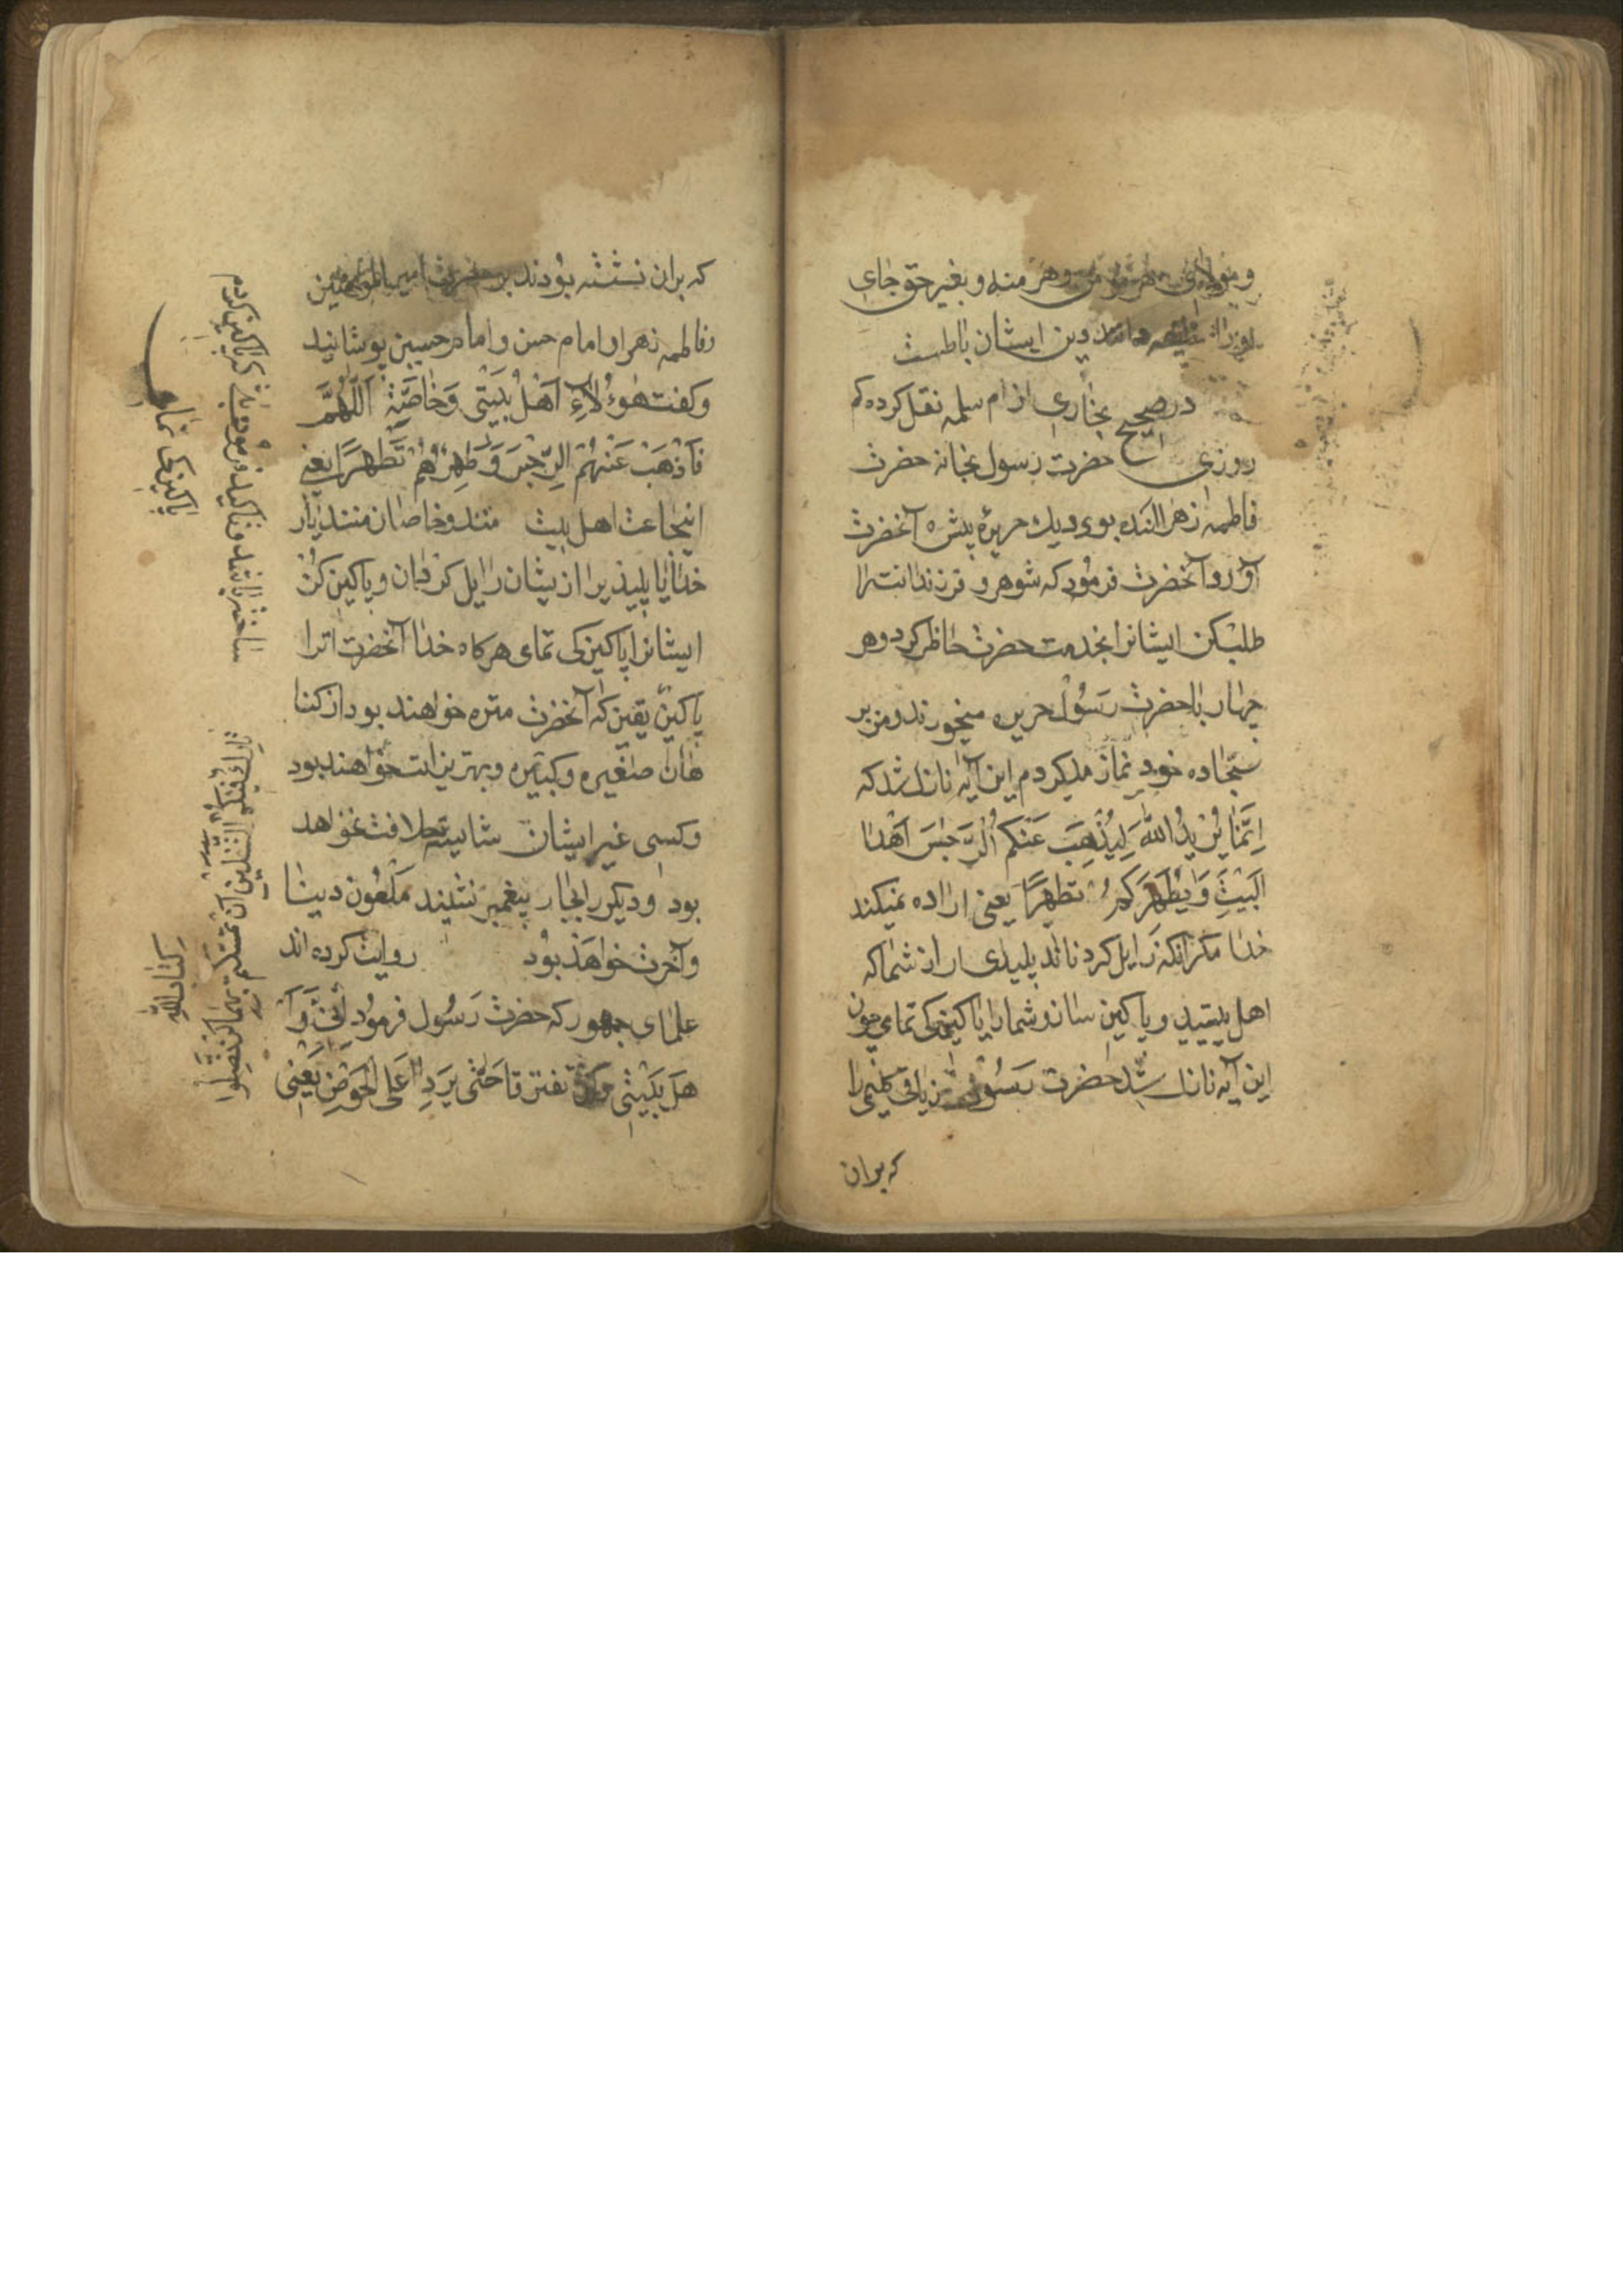 و مولای هر مؤمن و هر منه و بغیر حق جای
او را دین ایشان باطلست
در صحیح بخاری از ام سلمه نقل کرده که
روزی حضرت رسول بخانه حضرت
فاطمه زهرا امده بود و دیك حریره پیش آنحضرت
آورد و آنحضرت فرمود که شوهر و فرزندانت را
طلب کن ایشانرا بخدمت حضرت حاظر کرد و هر
چهار با حضرت رسول حریره میخوردند و من بر
سجاده خود نماز میکردم این آیه نازل شد که
اِنَّمٰا یُریدُ اللّهُ لِیُذْهِبَ عَنْکُمُ الرِّجْسَ اَهْلَ
الْبَیْتِ وَ یُطَهِّرَکُمْ تطهیرًا یعنی اراده نمیکند
خدا مکر آنکه زایل کرداند پلیدی را از شما که
اهل بیتید و پاکیزه سازد شما را پاکیزکی تمامی چون
این آیه نازل شد حضرت رسول زیادتی کلیمی را
که بران
که بران نشسته بودند بر حضرت امیر المؤمنین
و فاطمه زهرا و امام حسن و امام حسین پوشانید
و کفت هٰؤُلآءِ اَهْلُ بَیْتی وَ خٰاصَّتی اَللّٰهُمَّ
فَاَذْهَبْ عَنْهُمُ الرِّجْسَ وَ طَهِّرْهُمْ تَطْهیرًا یعنی
اینجاعت اهل بیت منند و خاصان منند بار
خدایا پلیدیرا از یشان زایل کردان و پاکیزه کن
ایشانرا پاکیزکی تمامی هرکاه خدا آنحضرت اترا
پاکیزه یقین که آنحضرت منزه خواهند بود از کنا
هان صغیره و کبیره و بهترین امت خواهند بود
و کسی غیر ایشان شایسته خلافت نخواهد
بود و دیکر را بجای پیغمبر نشیند ملعون دنیا
و آخرت خواهد بود روایت کرده اند
علمای جمهور که حضرت رسول فرمود
هل بیتی لن تفترقا حَتّٰی یَرِدا عَلَی الْحَوْضِ یَعْنی
تٰارِكٌ فیکُمُ الثَّقَلَینِ اِنْ تَمَسَّکْتُم بِهِمٰا لَنْ تَضِلُّوا
کِتٰابَ اللّهِ